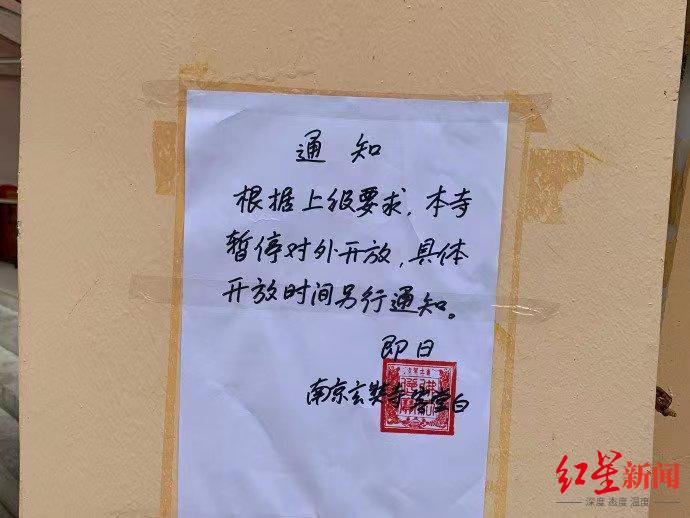 通知
根据上级要求，本寺
暂停对外开放，具体
开放时间另行通知。
即日
南京玄奘寺客堂白
红星新闻
深度 态度 温度